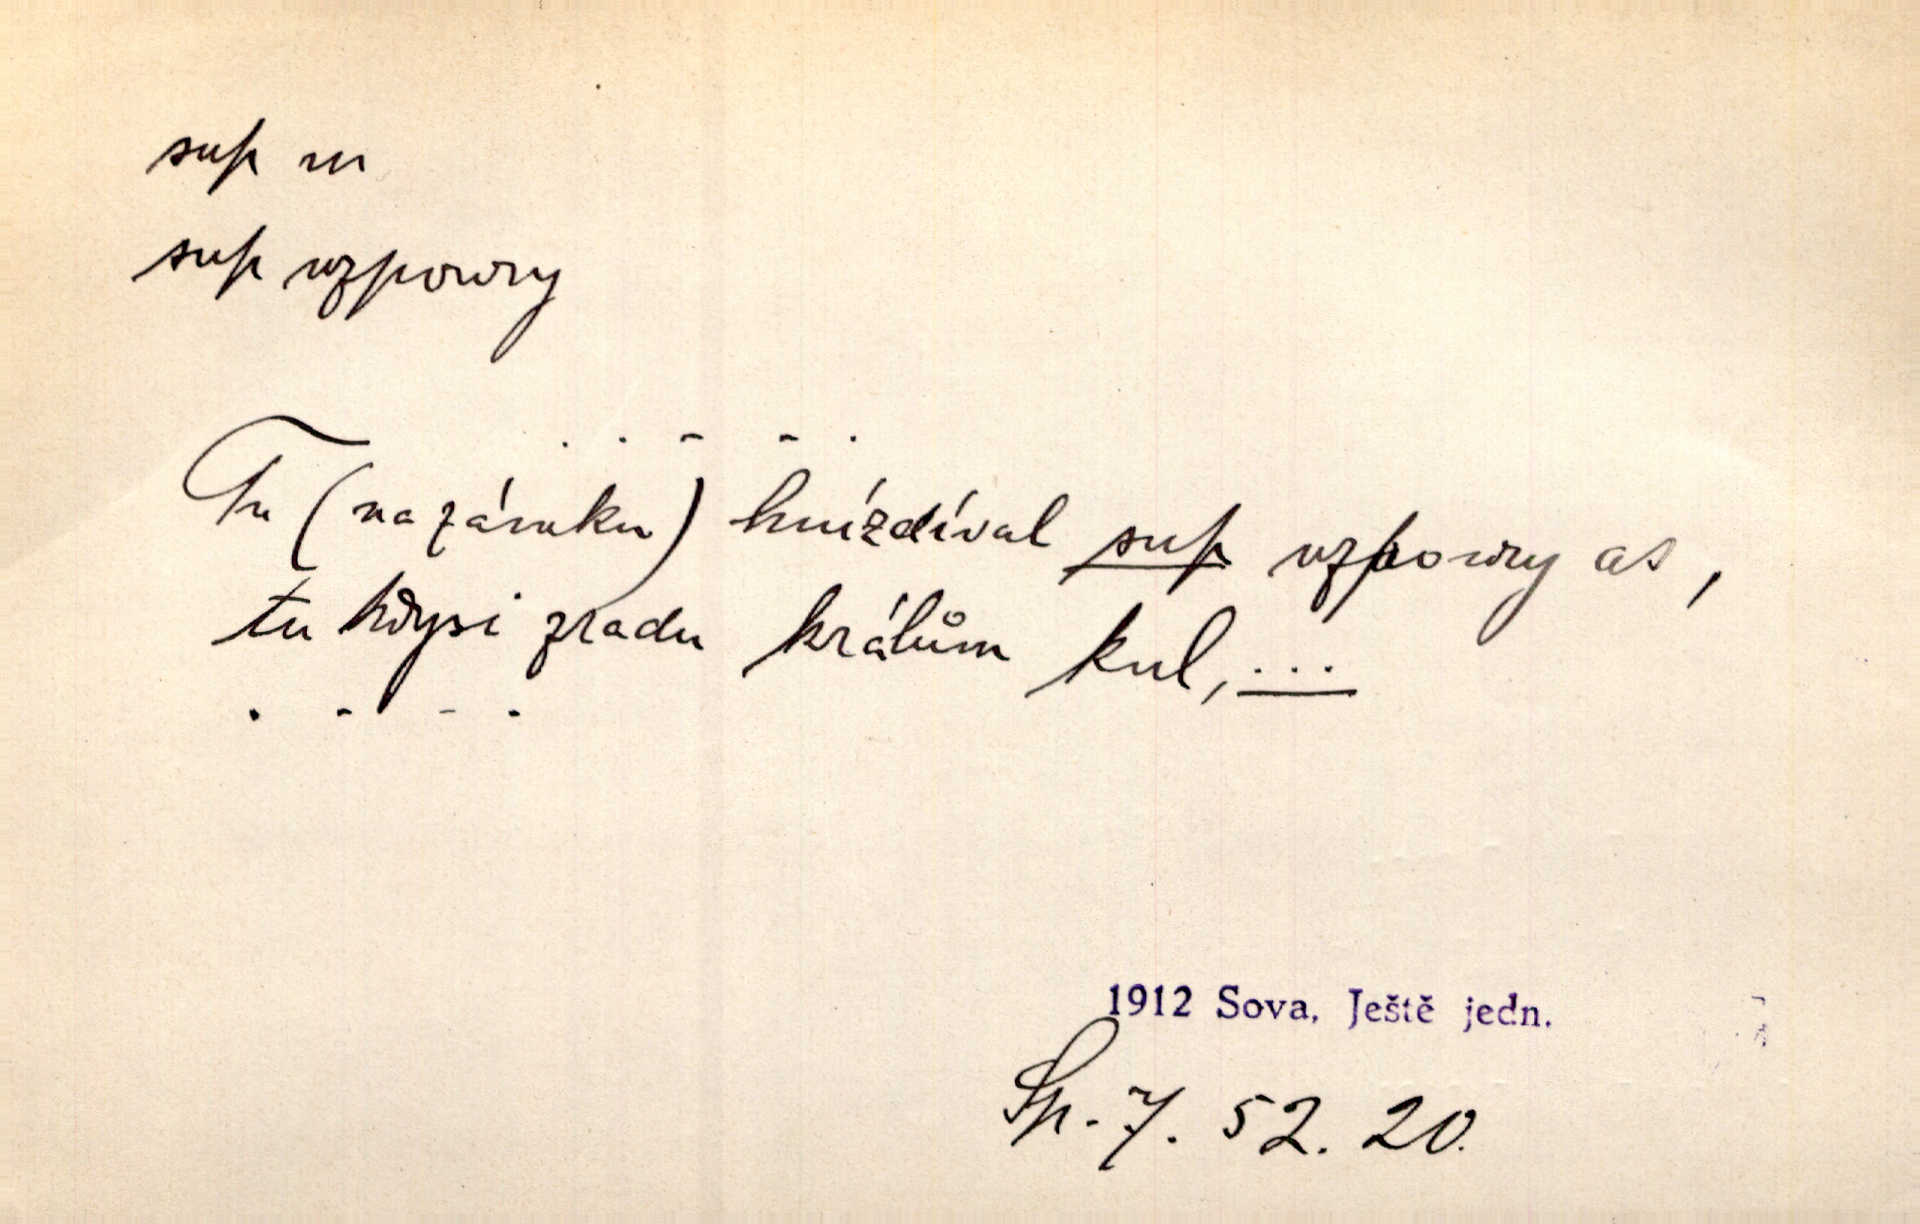 sup m
sup vzpoury
. . - - .
Tu (na zámku) hnízdíval sup vzpoury as,
tu kdysi zradu králům kul, ...
. - - .
1912 Sova, Ještě jedn.
Sp. 7. 52. 20.